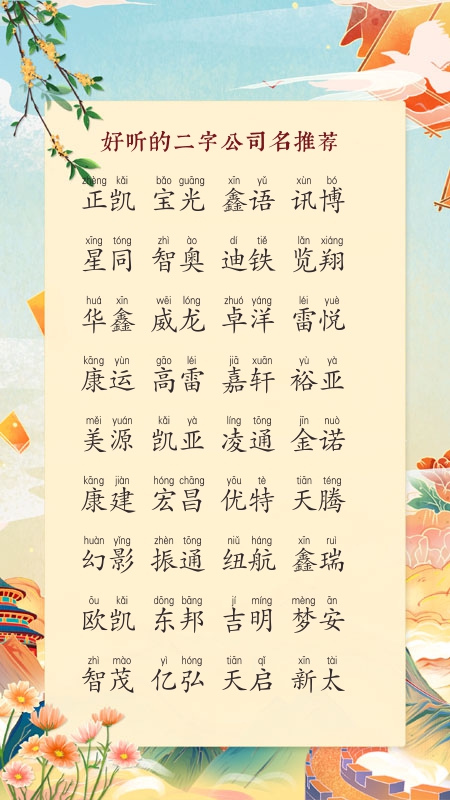 好听的二字公司名推荐
zhèng kǎi bǎo guāng xīn yǔ xùn bó
正凯 宝光 鑫语 讯博
xīng tóng zhì ào dí tiě lǎn xiáng
星同 智奥 迪铁 览翔
huá xīn wēi lóng zhuó yáng léi yuè
华鑫 威龙 卓洋 雷悦
kāng yùn gāo léi jiā xuān yù yà
康运 高雷 嘉轩 裕亚
měi yuán kǎi yà líng tōng jīn nuò
美源 凯亚 凌通 金诺
kāng jiàn hóng chāng yōu tè tiān téng
康建 宏昌 优特 天腾
huàn yǐng zhèn tōng niǔ háng xīn ruì
幻影 振通 纽航 鑫瑞
ōu kǎi dōng bāng jí míng mèng ān
欧凯 东邦 吉明 梦安
zhì mào yì hóng tiān qǐ xīn tài
智茂 亿弘 天启 新太